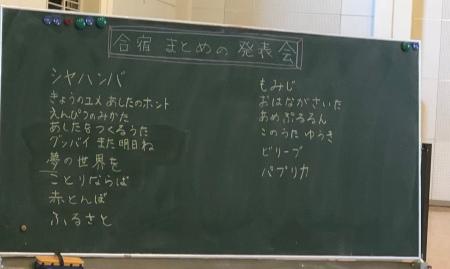 合宿 まとめの 発表会
シャハンバ
きょうのユメ あしたのホント
えんぴつのみかた
あしたをつくるうた
グッバイ また明日ね
夢の世界を
ことりならば
赤とんぼ
ふるさと
もみじ
おはながさいた
あめぷるるん
このうた ゆうき
ビリーブ
パプリカ